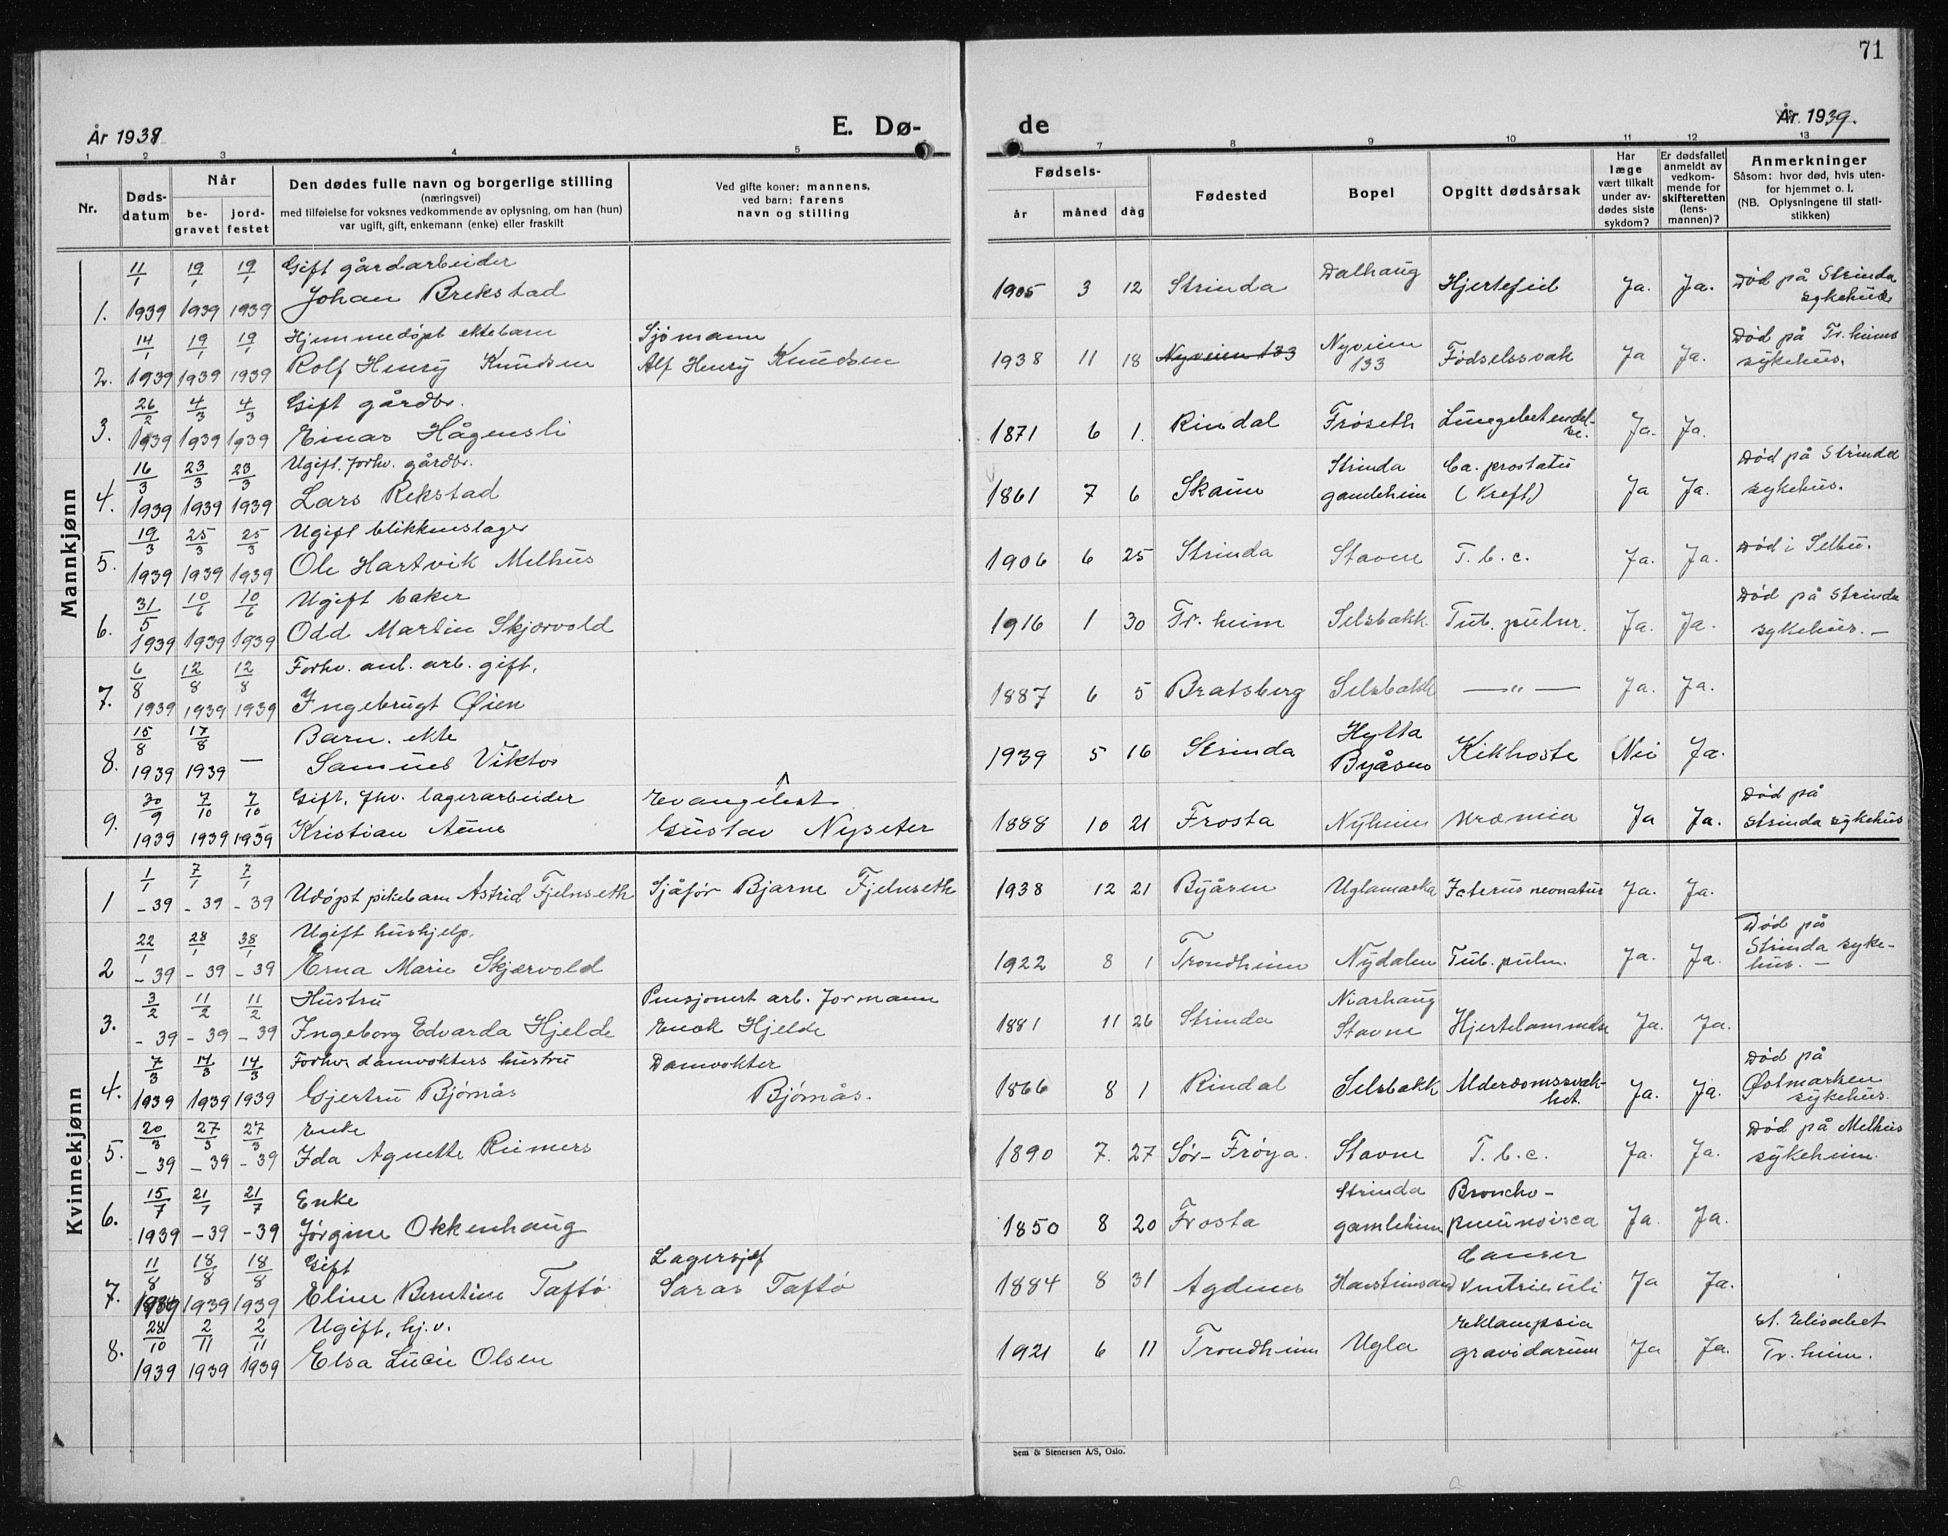 71
År 1939
E. Dø-
de
År 1939.
1 2 3 4 5 7 8 9 10 11 12 13
Nr.
Døds-
datum
Når
be-
gravet
jord-
festet
Den dødes fulle navn og borgerlige stilling
(næringsvei)
med tilføielse for voksnes vedkommende av oplysning, om han (hun)
var ugift, gift, enkemann (enke) eller fraskilt
Ved gifte koner: mannens,
ved barn: farens
navn og stilling
Fødsels-
år
måned
dag
Fødested
Bopel
Opgitt dødsårsak
Har
læge
vært tilkalt
under av-
dødes siste
sykdom?
Er dødsfallet
anmeldt av
vedkom-
mende for
skifteretten
(lens-
mannen)?
Anmerkninger
Såsom: hvor død, hvis uten-
for hjemmet o. l.
(NB. Oplysningene til stati-
stikken)
Mannkjønn
11/1 19/1 19/1 Gift gårdarbeider
1. 1939 1939 1939 Johan Brekstad
1905 3 12 Strinda Dalhaug Hjertefeil Ja. Ja. Død på Strinda
sykehus
14/1 19/1 19/1 Hjemmedøpt ektebarn Sjømann
2. 1939 1939 1939 Rolf Henry Knudsen Alf Henry Knudsen
1938 11 18 Nyveien 133 Nyveien
133 Fødselssvak Ja Ja. Død på Tr.heims
sykehus.
26/2 4/3 4/3 Gift gårdbr.
3. 1939 1939 1939 Einar Hågensli
1871 6 1. Rindal Frøseth Lungebetendel-
se. Ja. Ja.
16/3 23/3 23/3 Ugift. forhv. gårdbr.
4. 1939 1939 1939 Lars Rekstad
1861 7 6 Skaun Strinda
gamleheim Ca. prostatu
(Kreft) Ja Ja. Død på Strinda
sykehus.
19/3 25/3 25/3 Ugift blikkenslager
5. 1939 1939 1939 Ole Hartvik Melhus
1906 6 25 Strinda Stavne T.b.c. Ja. Ja. Død i Selbu.
31/5 10/6 10/6 Ugift baker
6. 1939 1939 1939 Odd Martin Skjærvold
1916 1 30 Tr.heim Selsbakk Tub. pulm. Ja. Ja. Død på Strinda
sykehus. —
6/8 12/8 12/8 Forhv. anl. arb. gift.
7. 1939 1939 1939 Ingebrigt Øien
1887 6 5 Bratsberg Selsbakk —"— Ja. Ja.
15/8 17/8 Barn. ekte
8. 1939 1939 — Samuel Viktor
1939 5 16 Strinda Hytta
Byåsen Kikhoste Nei Ja.
30/9 7/10 7/10 Gift, fhv. lagerarbeider Evangelist
9. 1939 1939 1939 Kristian Aune Gustav Nyseter
1888 10 21 Frosta Nyheim Uræmia Ja Ja. Død på
Strinda sykehus
Kvinnekjønn
1/1 7/1 7/1
1 -39 -39 -39 Udøpt pikebarn Astrid Fjelnseth Sjåfør Bjarne Fjelnseth
1938 12 21 Byåsen Uglamarka Icterus neonatus Ja. Ja.
22/1 28/1 38/1 Ugift hushjelp.
2 -39 -39 -39 Erna Marie Skjærvold
1922 8 1 Trondheim Nydalen Tub. pulm. Ja. Ja. Død på
Strinda syke-
hus. —
3/2 11/2 11/2 Hustru Pensjonert arb. formann
3. -39 -39 -39 Ingeborg Edvarda Hjelde Enok Hjelde
1881 11 26 Strinda Niarhaug
Stavne Hjertelammelse Ja. Ja.
7/3 14/3 14/3 Forhv. damvokters hustru Damvokter
4. 1939 1939 1939 Gjertru Bjørnås Bjørnås.
1866 8 1 Rindal Selsbakk Alderdomssvak-
het. Ja. Ja. Død på
Østmarken
sykehus.
20/3 27/3 27/3 Enke
5. -39 -39 -39 Ida Agnette Reimers
1890 7. 27 Sør-Frøya. Stavne T.b.c. Ja. Ja. Død på Melhus
sykeheim.
15/7 21/7 21/7 Enke
6. 1939 -39 -39 Jørgine Okkenhaug
1850 8 20 Frosta Strinda
gamleheim Broncho-
pneumonica Ja. Ja.
11/8 18/8 18/8 Gift Lagersjef
7. 1939 1939 1939 Eline Berntine Taftø Taftø
1884 8 31 Agdenes Cancer
ventriculi Ja Ja.
28/10 2/11 2/11 Ugift, hj.v.
8. 1939 1939 1939 Elsa Lucie Olsen
1921 6 11 Trondheim Ugla Eklampsia
gravidarum Ja Ja. St. Elisabet
Tr.heim.
sem & Stenersen A/S, Oslo.